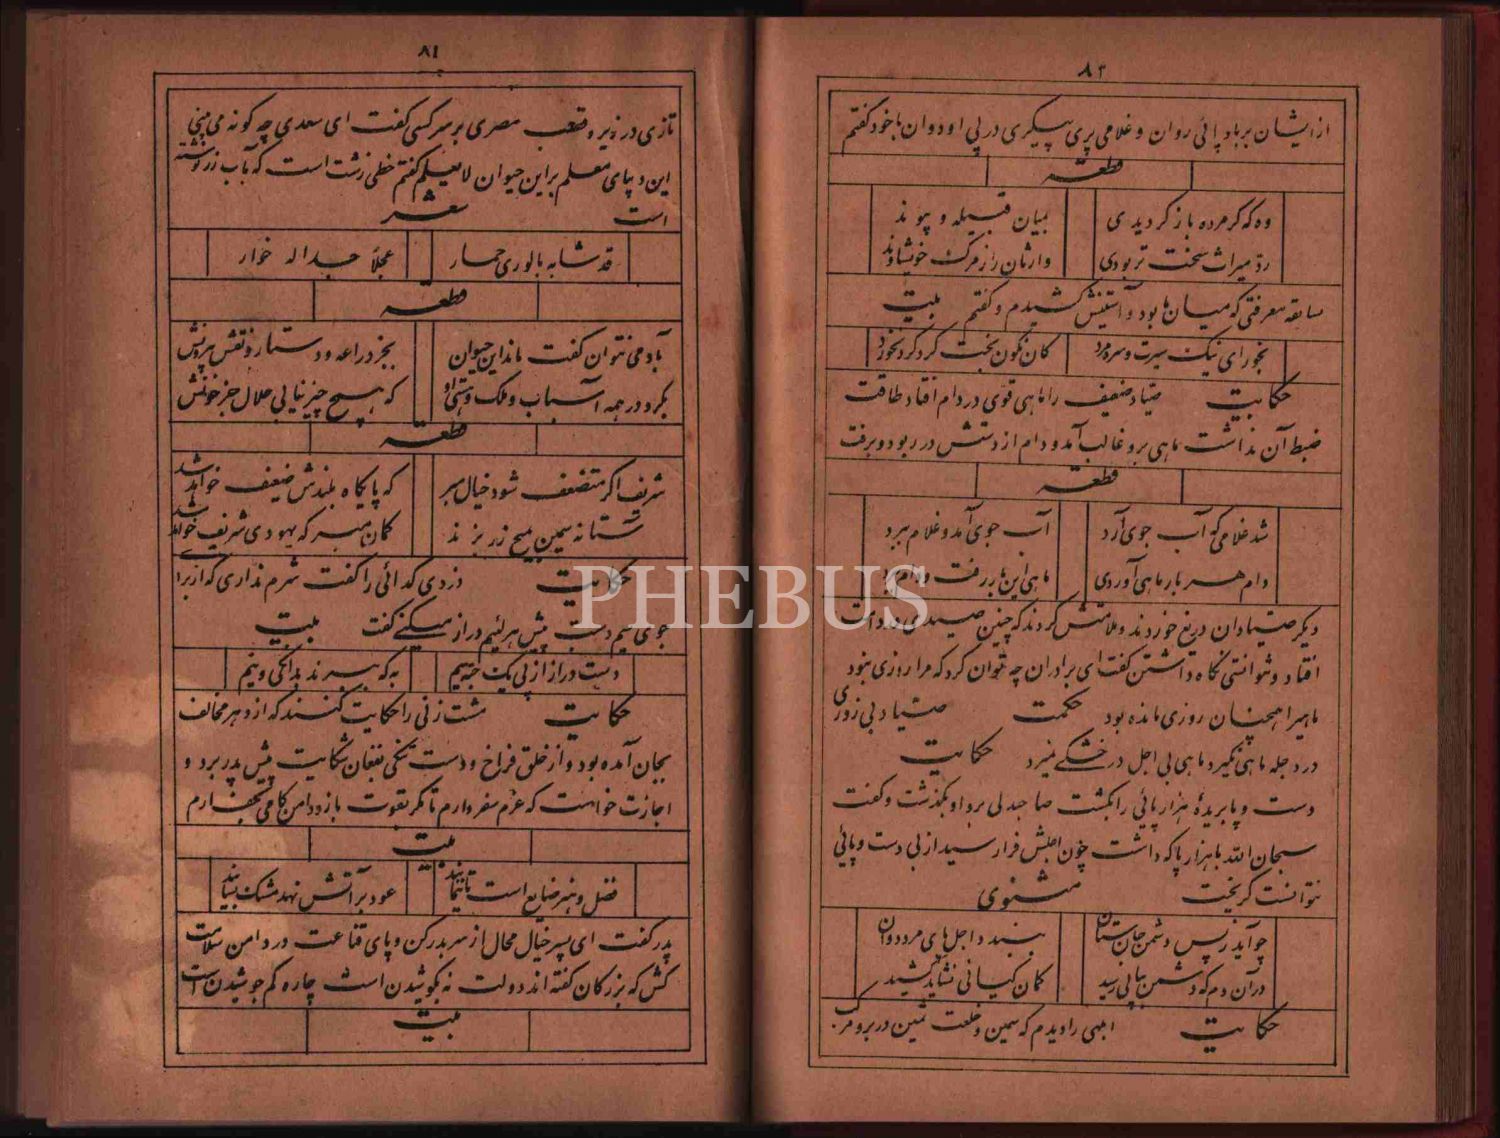 ۸۲
از ایشان بر باد پائی روان و غلامی پری پیکری در پی او دوان با خود گفتم
قطعه
وه که گر مرده باز گردیدی
بمیان قبیله و پیوند
رد میراث سخت تر بودی
وارثان را ز مرک خویشاوند
سابقه معرفتی که میان ما بود آستینش کشیدم و گفتم بیت
بخور ای نیک سیرت و سره مرد
کان نگون بخت گرد کرد و نخورد
حکایت صیاد ضعیف را ماهی قوی در دام افتاد طاقت
ضبط آن نداشت ماهی برو غالب آمد و دام از دستش در ربود و برفت
قطعه
شد غلامی که آب جوی آرد
آب جوی آمد و غلام ببرد
دام هر بار ماهی آوردی
ماهی این بار رفت و دام ببرد
دیگر صیادان دریغ خوردند و ملامتش کردند که چنین صیدی در دامت
افتاد و نتوانستی نگاه داشتن گفت ای برادران چه توان کرد که مرا روزی نبود
ماهیرا همچنان روزی مانده بود حکمت صیاد بی روزی
در دجله ماهی نگیرد و ماهی بی اجل در خشکی نمیرد حکایت
دست و پا بریدهٔ هزار پائی را بکشت صاحبدلی برو او بگذشت و گفت
سبحان الله با هزار پا که داشت چون اجلش فرا رسید از بی دست و پائی
نتوانست گریخت مثنوی
چو آید ز پس دشمن جان ستان
ببندد اجل پای مرد دوان
در آن دم که دشمن پیاپی رسید
کمان کیانی نشاید کشید
حکایت ابلهی را دیدم که سمین و خلعت ثمین در بر و مرکب
۸۱
تازی در زیر و قصب مصری بر سر کسی گفت ای سعدی چه گونه می بینی
این دیبای معلم بر این حیوان لا یعلم گفتم خطی زشت است که بآب زر نوشته
است شعر
قد شابه بالوری حمار
عجلا جسدا له خوار
قطعه
بآدمی نتوان گفت ماند این حیوان
بجز دراعه و دستار و نقش بیرونش
بگرد در همه اسباب و ملک و هستی او
که هیچ چیز نیابی حلال جز خونش
قطعه
شریف اگر متضعف شود خیال مبر
که پایگاه بلندش ضعیف خواهد شد
ور آستانه سیمین بمیخ زر بزند
گمان مبر که یهودی شریف خواهد شد
حکایت دزدی گدائی را گفت شرم نداری که از برای
جوی سیم دست پیش هر لئیم دراز میکنی گفت بیت
دست دراز از پی یک حبه سیم
به که ببرند بدانگی و نیم
حکایت مشت زنی را حکایت کنند که از دهر مخالف
بجان آمده بود و از حلق فراخ و دست تنگی بفغان شکایت پیش پدر برد و
اجازت خواست که عزم سفر دارم تا مگر بقوت بازو دامن کامی بکف آرم
بیت
فضل و هنر ضایع است تا ننمایند
عود بر آتش نهند مشک بسایند
پدر گفت ای پسر خیال محال از سر بدر کن و پای قناعت در دامن سلامت
کش که بزرگان گفته اند دولت نه بکوشیدن است چاره کم جوشیدن است
بیت
PHEBUS